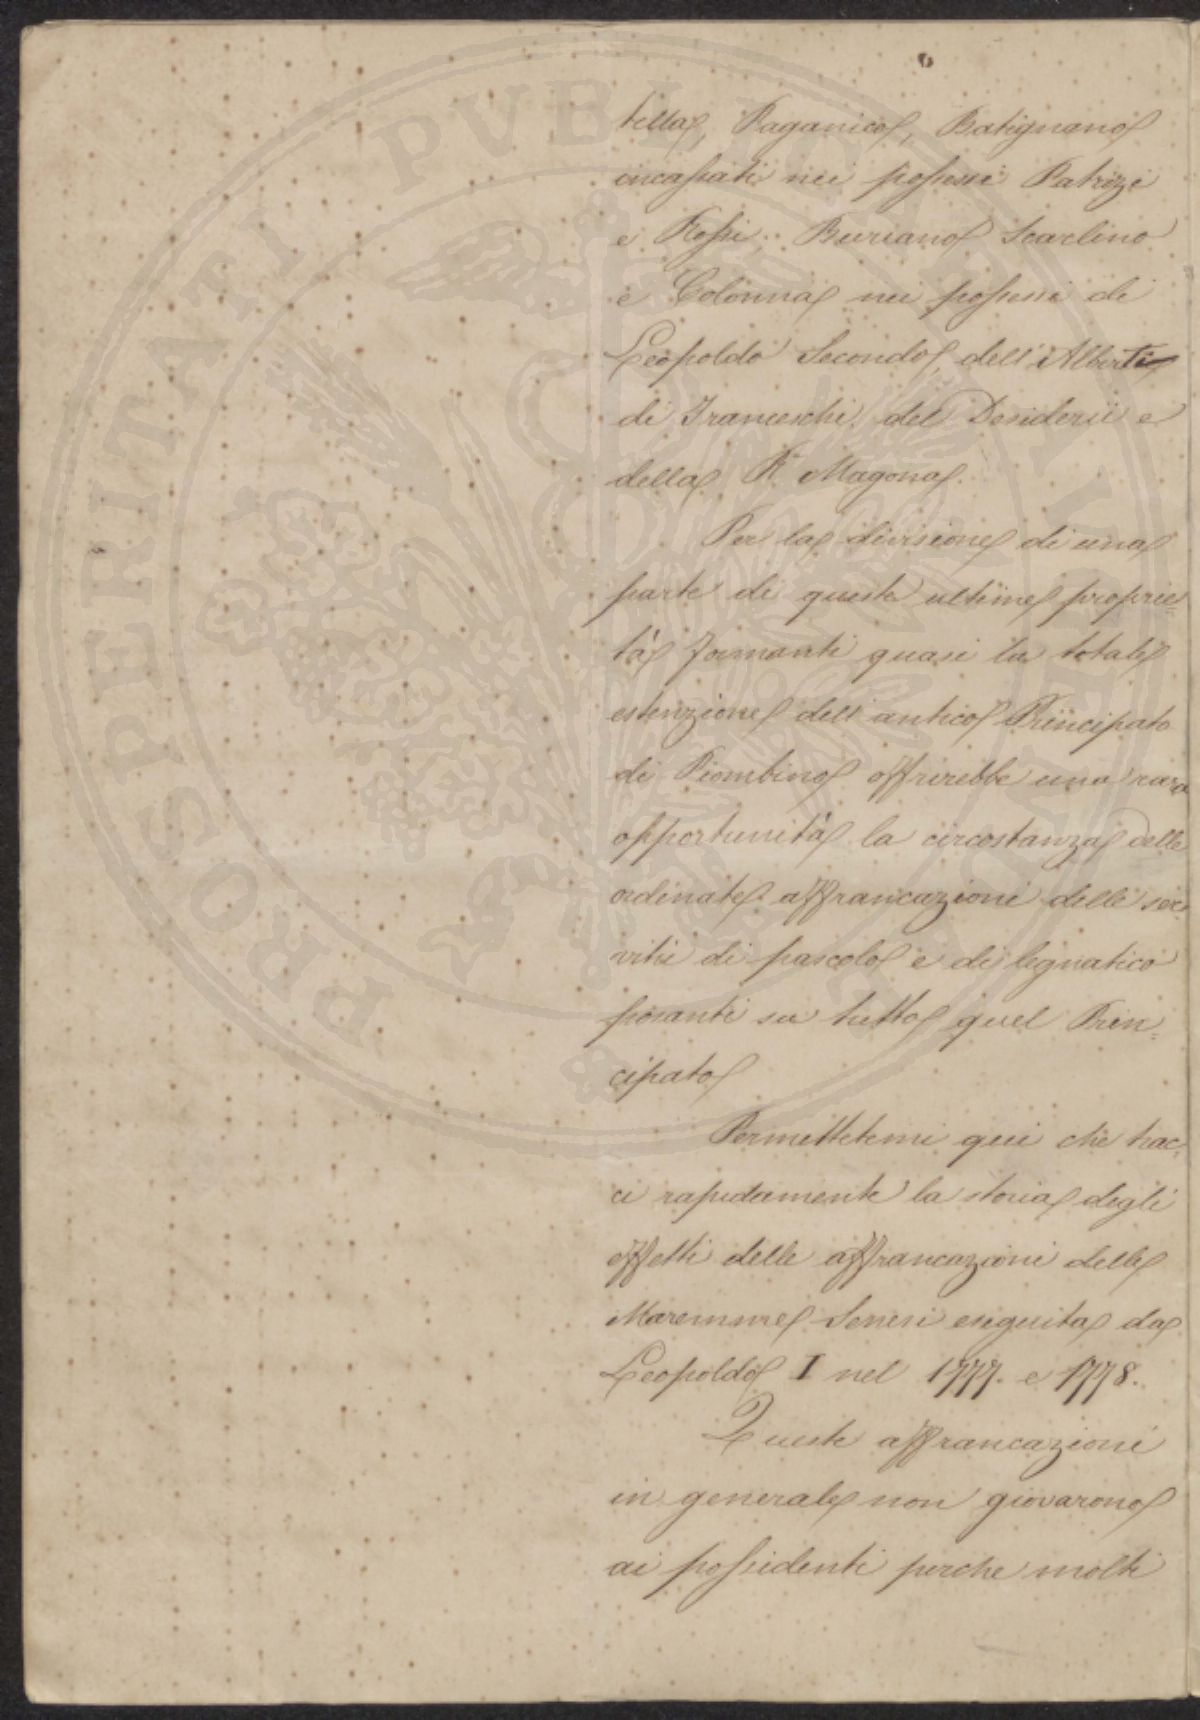 tella, Paganico, Batignano
incassati nei possessi Patrizi
e Rossi; Buriano Scarlino
e Colonna nei possessi di
Leopoldo Secondo, dell'Alberti
di Franceschi, del Desiderii e
della R. Magona.
Per la divisione di una
parte di queste ultime proprie=
tà formanti quasi la totale
estenzione dell'antico Principato
di Piombino offrirebbe una rara
opportunità la circostanza delle
ordinate affrancazioni delle ser=
vitù di pascolo e di legnatico
posanti su tutto quel Prin=
cipato
Permettetemi qui che trac=
ci rapidamente la storia degli
effetti delle affrancazioni delle
Maremme Senesi eseguita da
Leopoldo I nel 1777. e 1778.
Queste affrancazioni
in generale non giovarono
ai possidenti perche molti
PROSPERITATI PUBLICAE